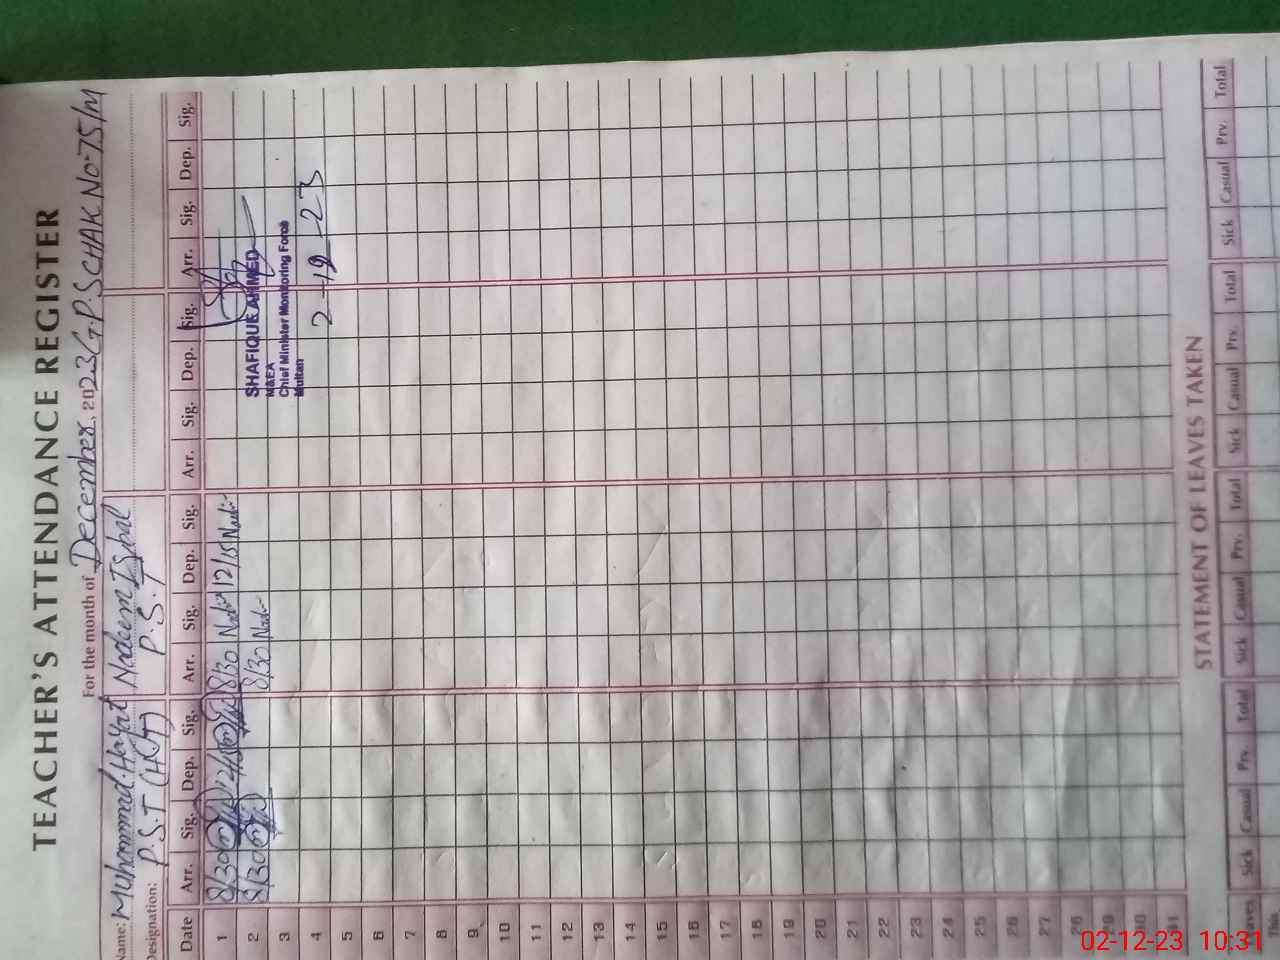 TEACHER'S ATTENDANCE REGISTER
For the month of December, 2023 G.P.S CHAK No. 75/M
Name: Muhammad Hayat Nadeem Iqbal
Designation: P.S.T (H.T) P.S.T
Date Arr. Sig. Dep. Sig. Arr. Sig. Dep. Sig. Arr. Sig. Dep. Sig. Arr. Sig. Dep. Sig.
1 8/30 12/15 8/30 12/15
2 8/30 8/30
SHAFIQUE AHMED
M&EA
Chief Minister Monitoring Force
Multan
2-12-23
3
4
5
6
7
8
9
10
11
12
13
14
15
16
17
18
19
20
21
22
23
24
25
26
27
28
29
30
31
STATEMENT OF LEAVES TAKEN
Leaves Sick Casual Prv. Total Sick Casual Prv. Total Sick Casual Prv. Total Sick Casual Prv. Total
This
02-12-23 10:31